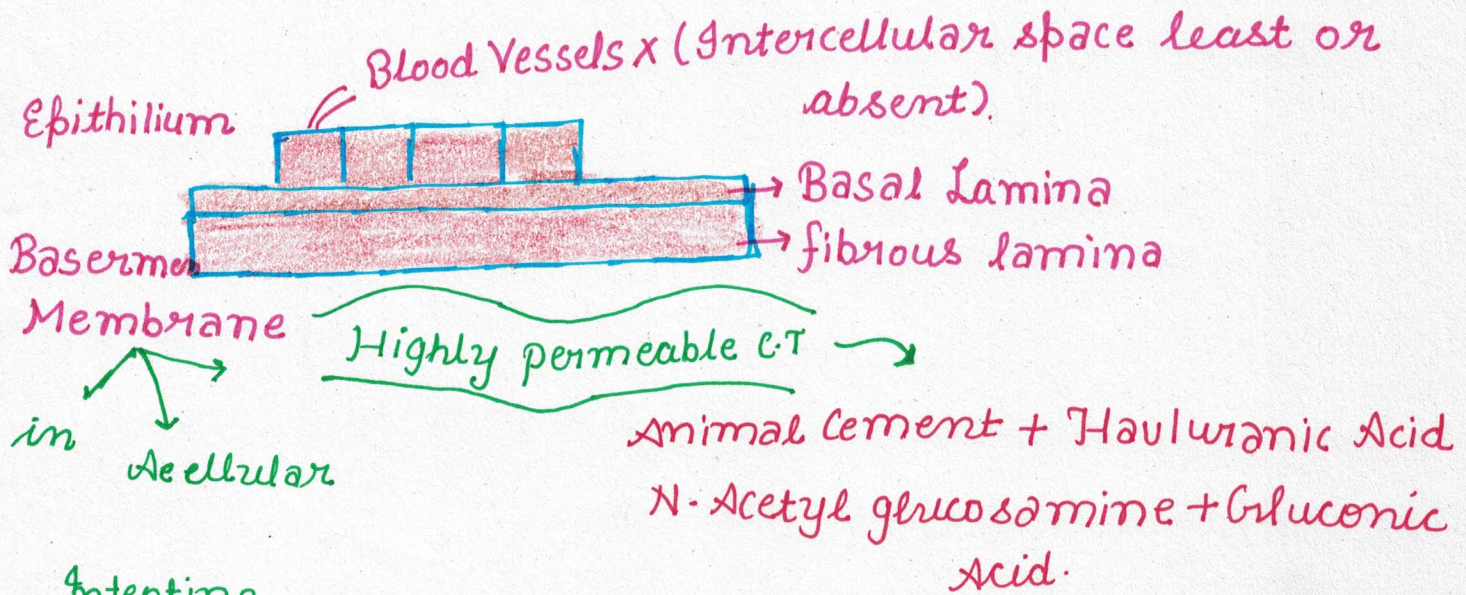 Blood Vessels x (Intercellular space least or
absent).
Epithilium
Basal Lamina
fibrous lamina
Basermen
Membrane
Highly permeable C.T
in
Acellular
Animal Cement + Hauluranic Acid
N-Acetyl glucosamine + Gluconic
Acid.